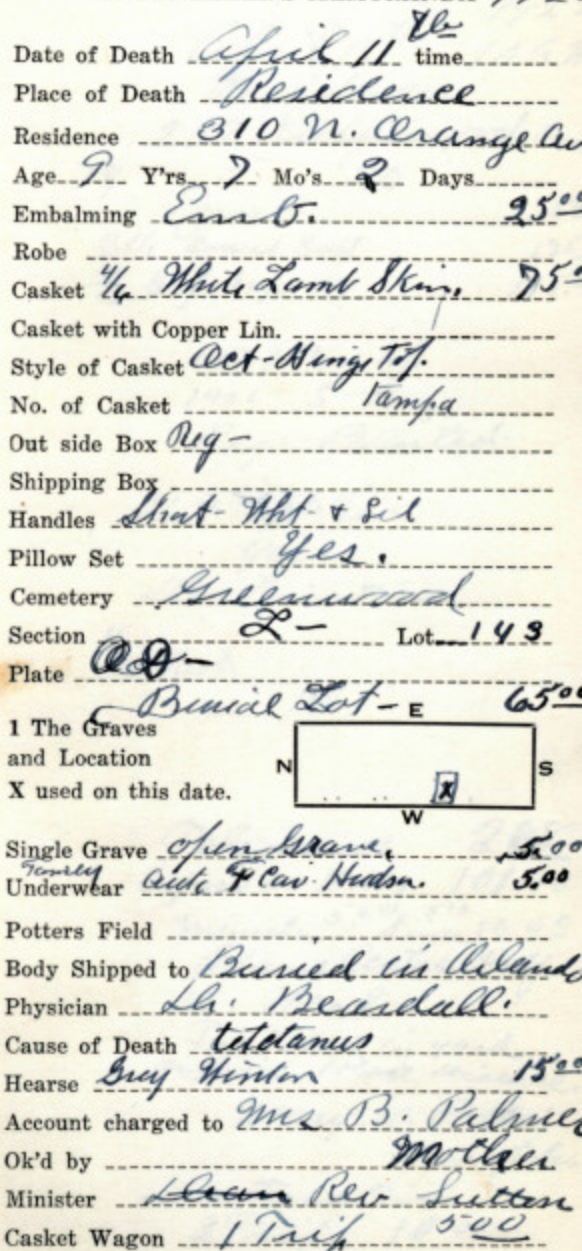 Date of Death April 11 time
Place of Death Residence
Residence 310 N. Orange Av
Age 9 Y'rs 7 Mo's 2 Days
Embalming Emb. 25 00
Robe
Casket 4/6 White Lamb Skin. 75 0
Casket with Copper Lin.
Style of Casket Oct-Hinge Top.
No. of Casket Tampa
Out side Box Reg-
Shipping Box
Handles Short-Wht & Sil
Pillow Set Yes.
Cemetery Greenwood
Section L- Lot 143
Plate
Burial Lot- 65 00
E
1 The Graves
and Location
X used on this date.
N X S
W
Single Grave open Grave, 5.00
Family
Underwear auto 7 Cav. Hudson. 5.00
Potters Field
Body Shipped to Buried in Orlando
Physician Dr. Beardall.
Cause of Death tetetanus
Hearse Grey Winton 15 00
Account charged to Mrs B. Palmer
Ok'd by Mother
Minister Dean Rev Sutton
Casket Wagon 1 Trip 5 00